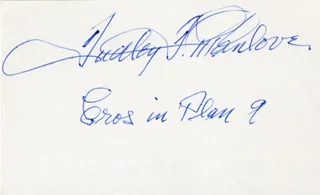 Dudley D. Manlove
Eros in Plan 9